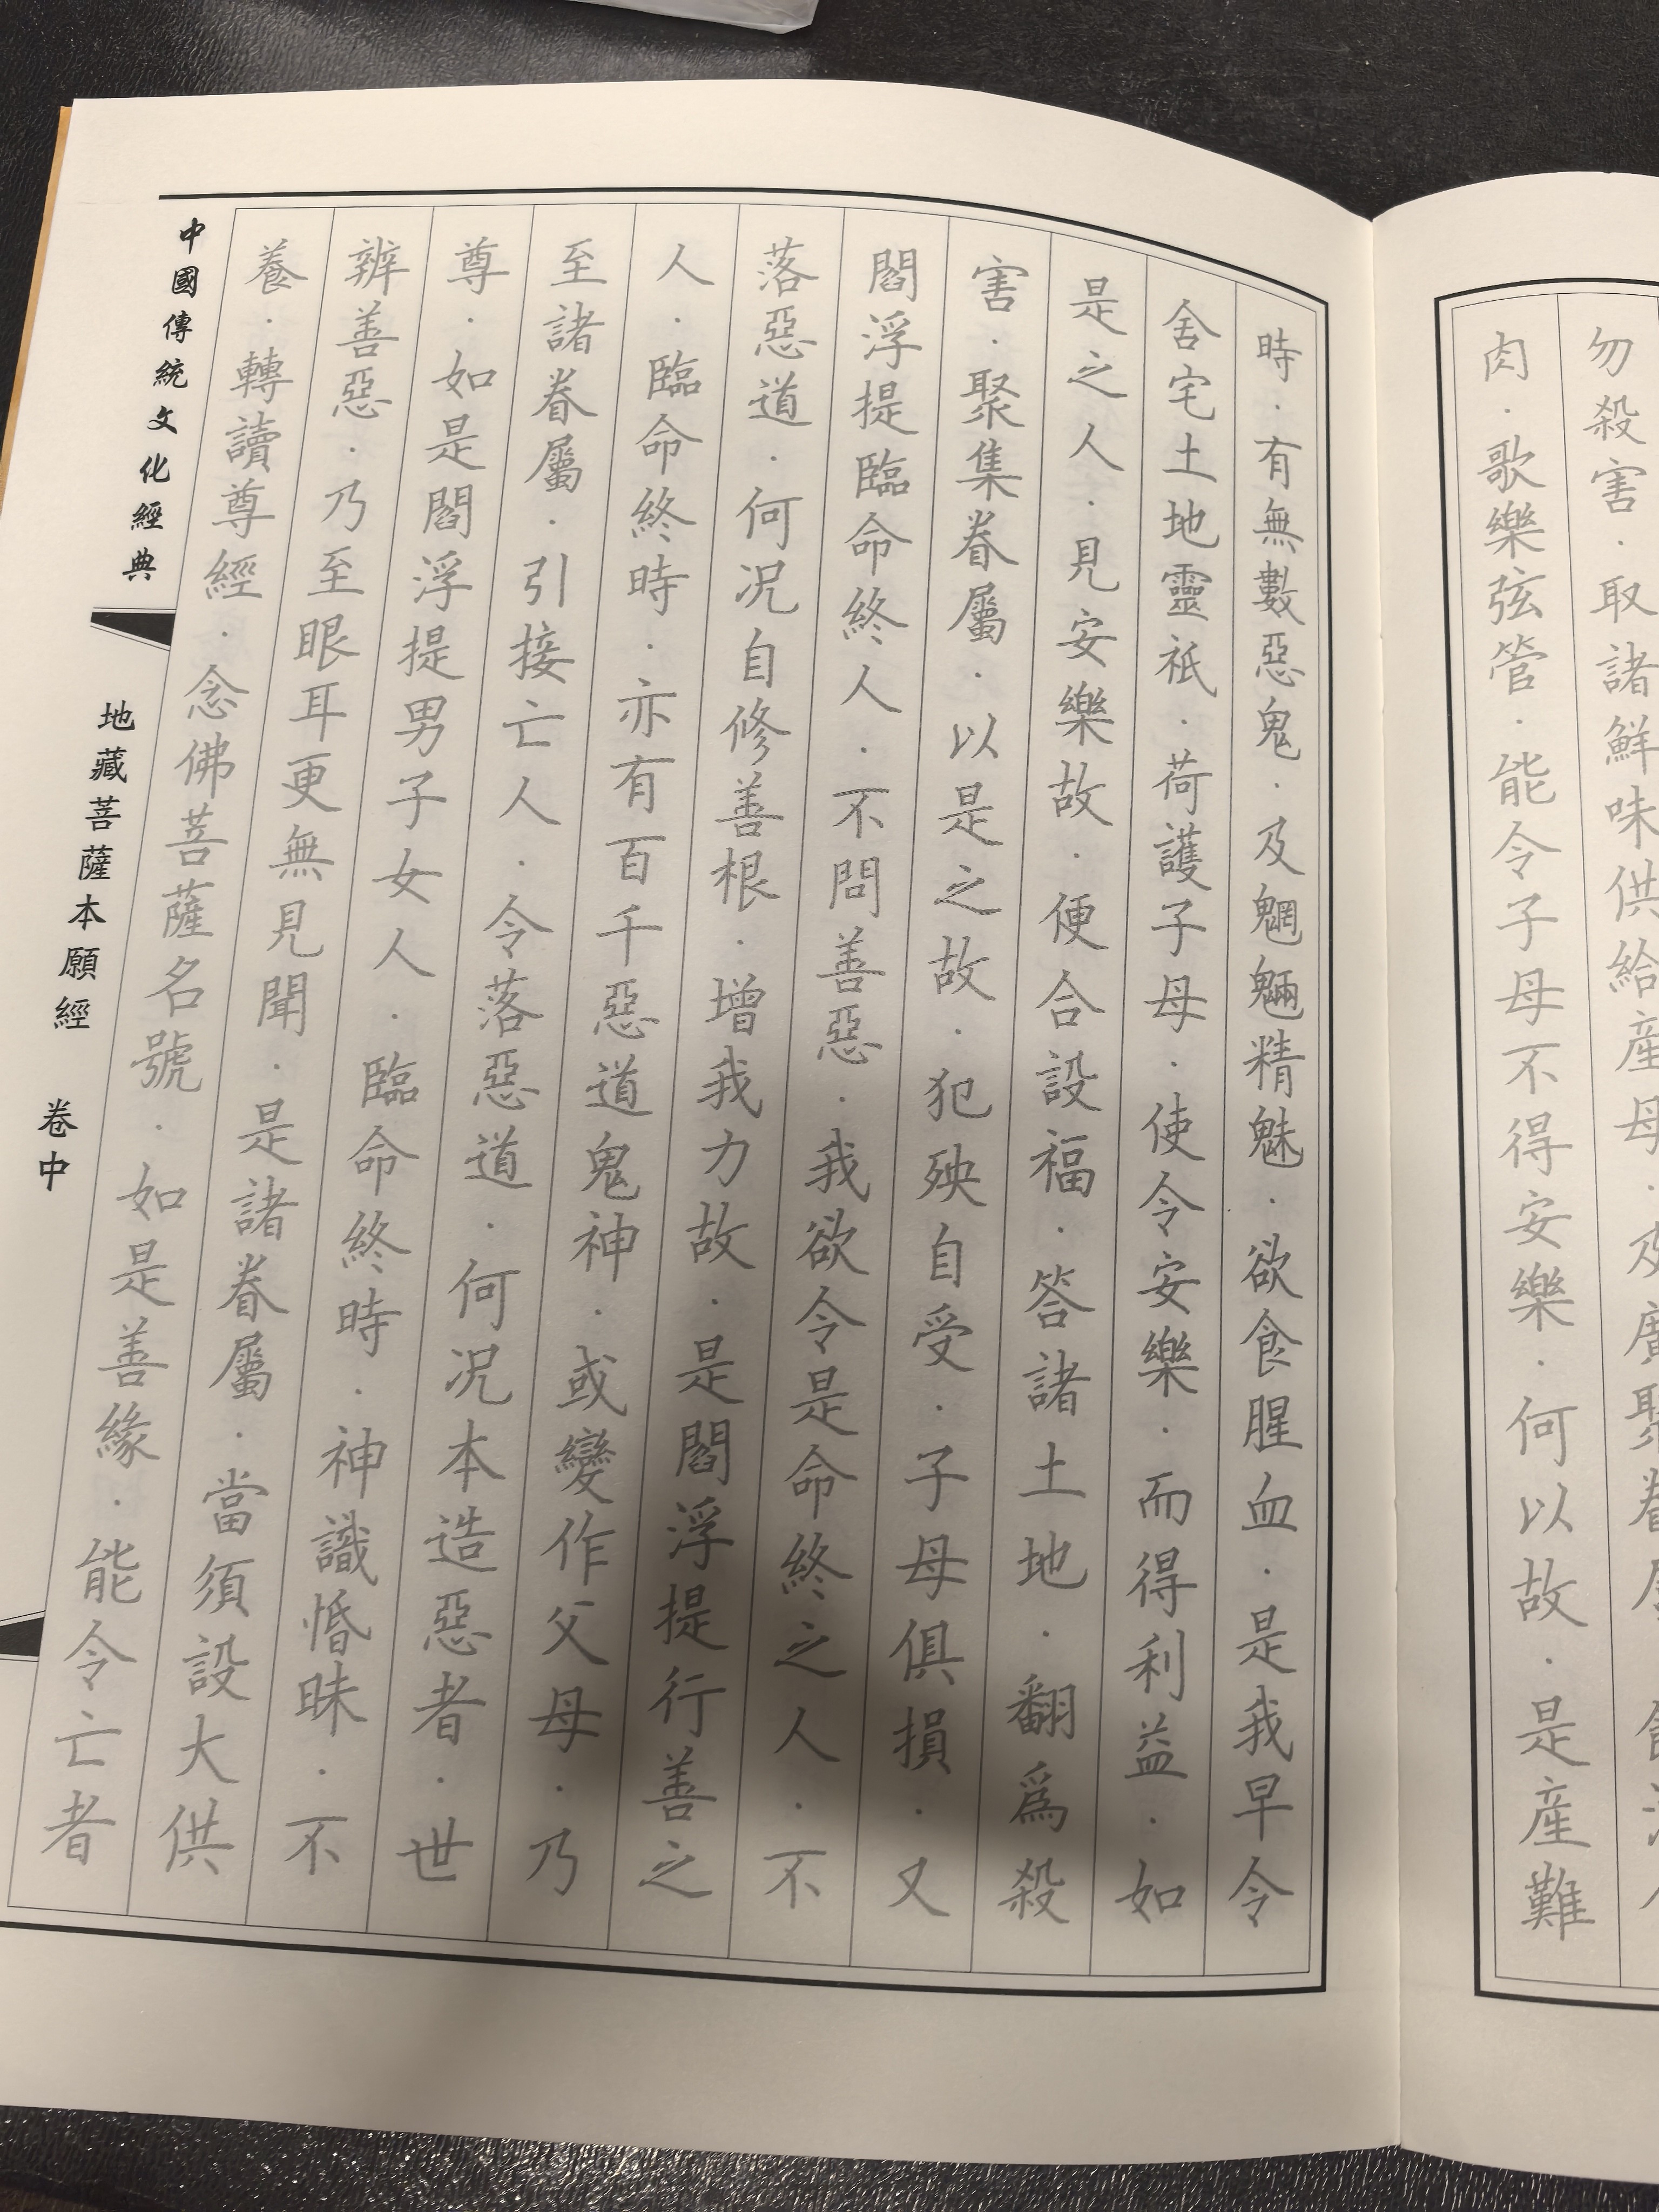 勿殺害．取諸鮮味供給産母．及廣聚眷
肉．歌樂弦管．能令子母不得安樂．何以故．是産難
時．有無數惡鬼．及魍魎精魅．欲食腥血．是我早令
舍宅土地靈祇．荷護子母．使令安樂．而得利益．如
是之人．見安樂故．便合設福．答諸土地．翻爲殺
害．聚集眷屬．以是之故．犯殃自受．子母俱損．又
閻浮提臨命終人．不問善惡．我欲令是命終之人．不
落惡道．何况自修善根．增我力故．是閻浮提行善之
人．臨命終時．亦有百千惡道鬼神．或變作父母．乃
至諸眷屬．引接亡人．令落惡道．何况本造惡者．世
尊．如是閻浮提男子女人．臨命終時．神識惛昧．不
辨善惡．乃至眼耳更無見聞．是諸眷屬．當須設大供
養．轉讀尊經．念佛菩薩名號．如是善緣．能令亡者
中國傳統文化經典
地藏菩薩本願經 卷中